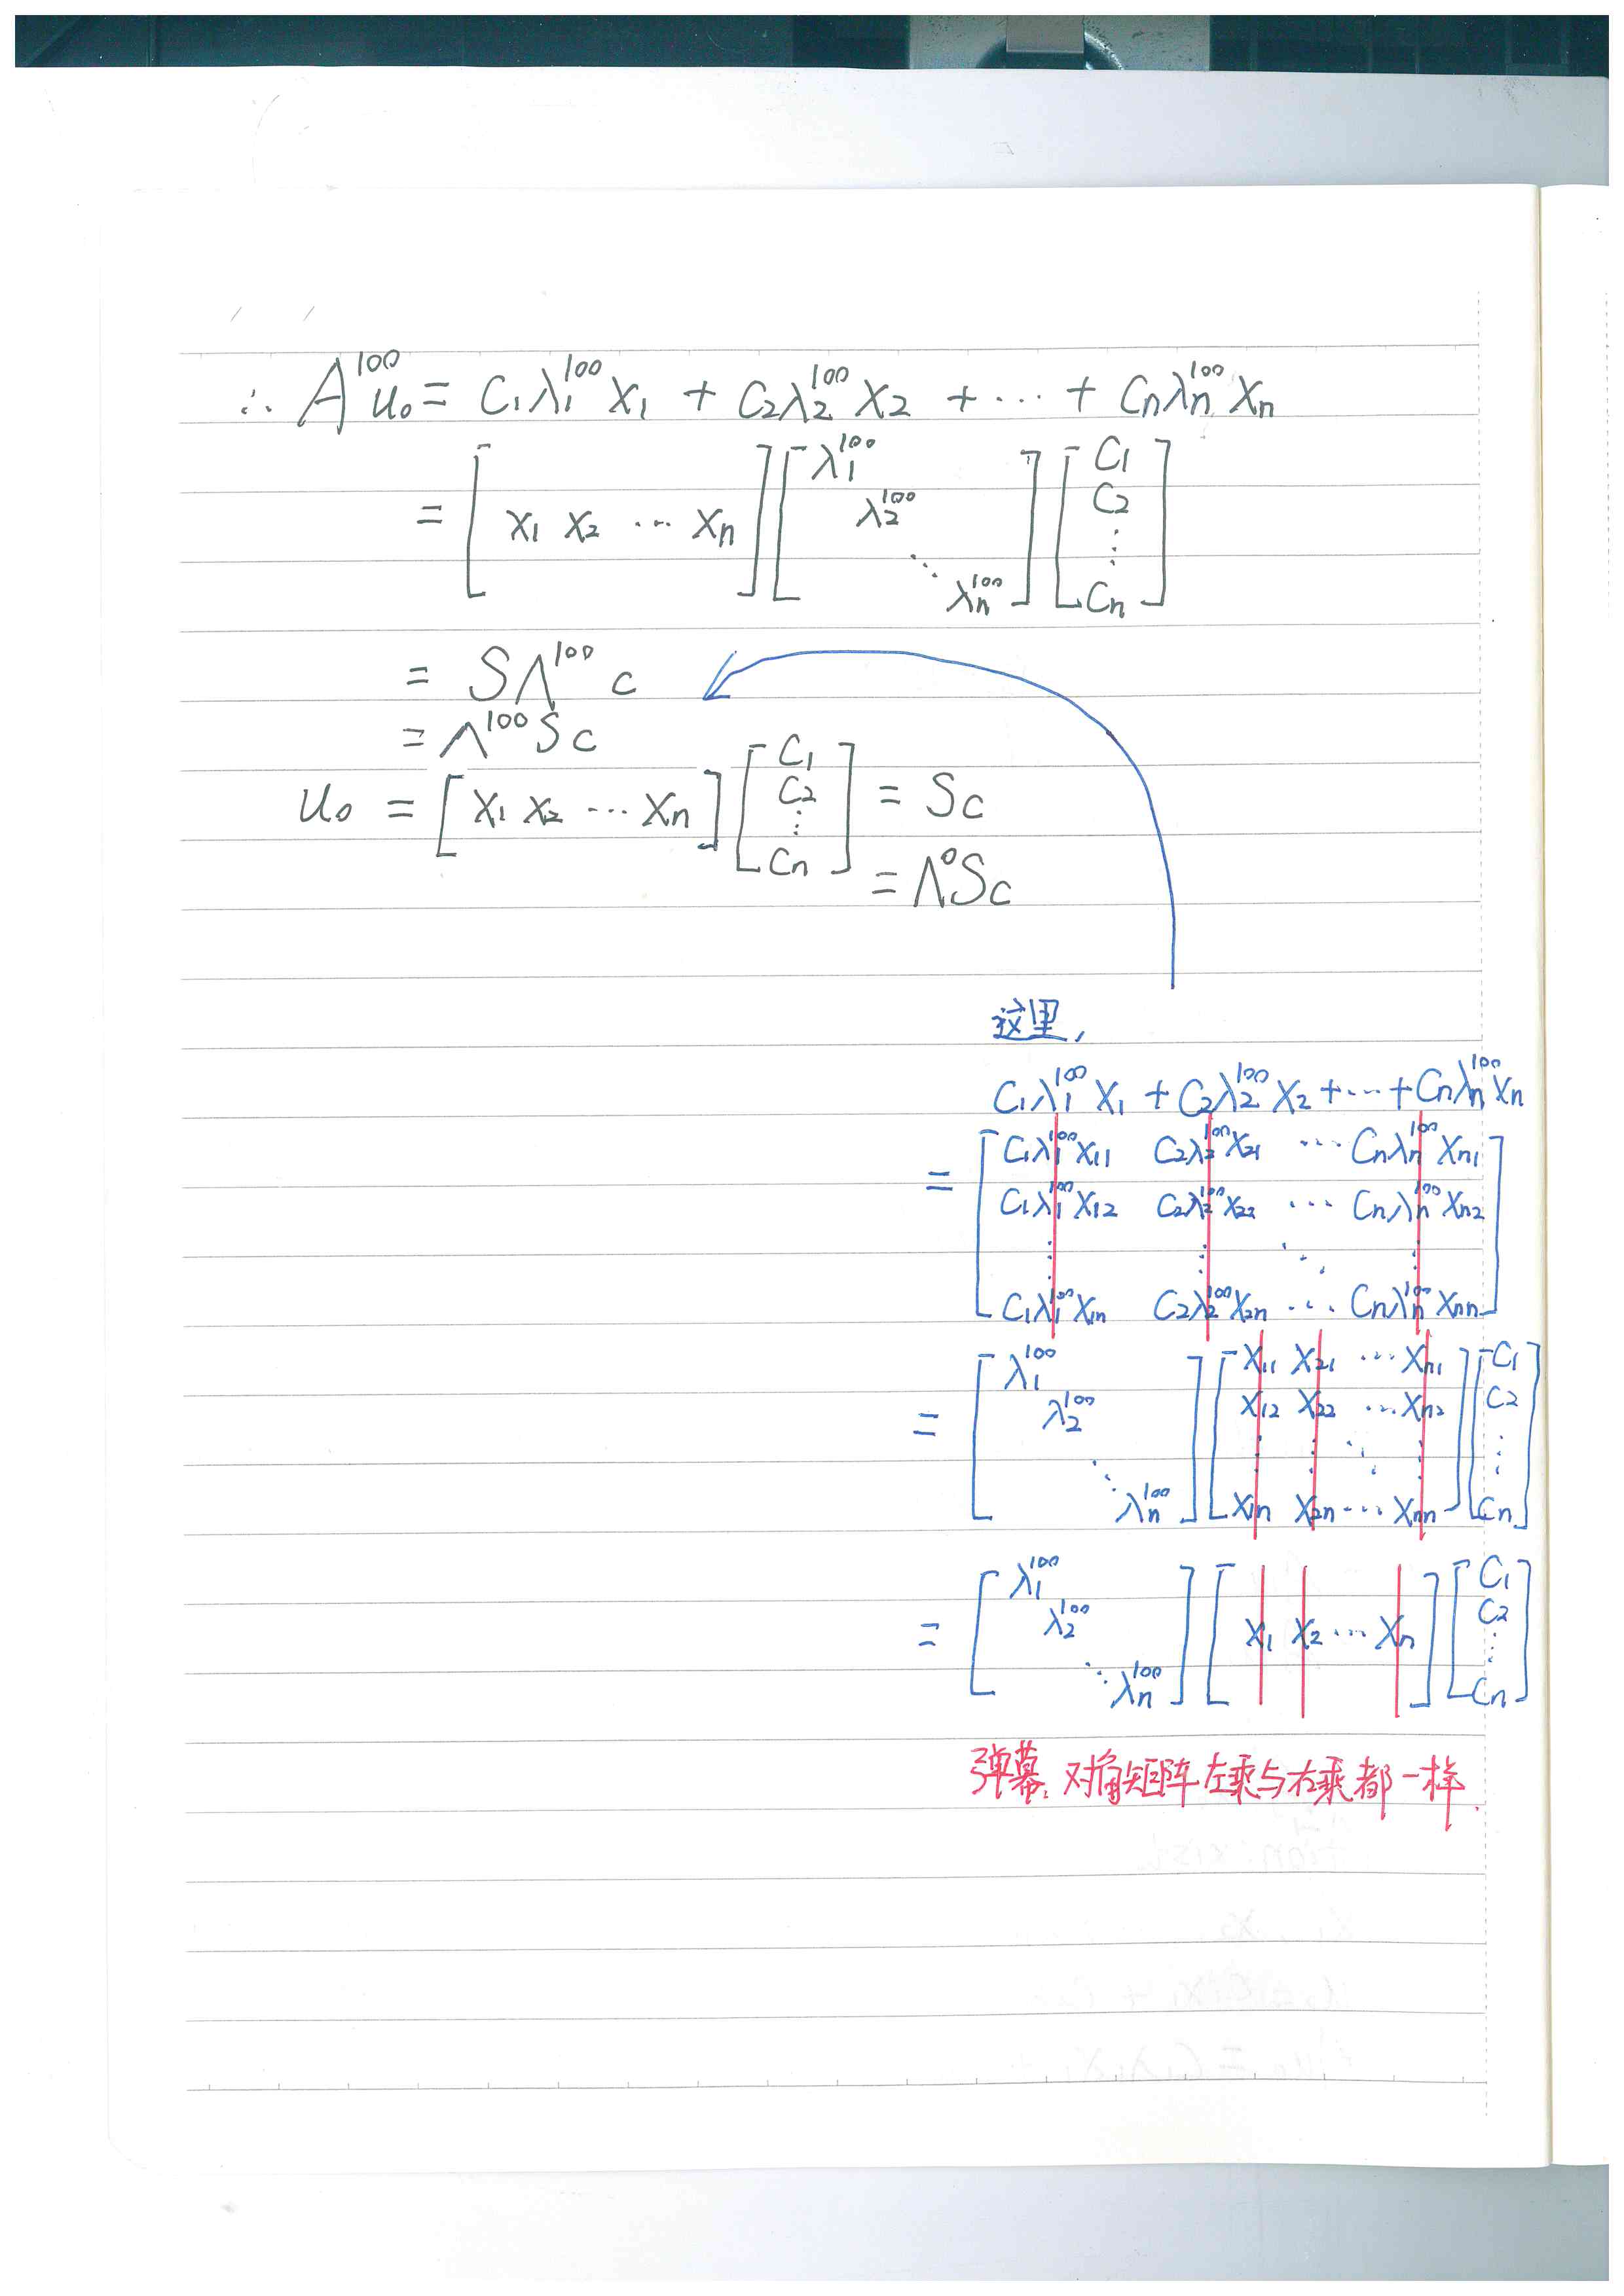 ∴ A¹⁰⁰u₀ = C₁λ₁¹⁰⁰X₁ + C₂λ₂¹⁰⁰X₂ + ⋯ + Cₙλₙ¹⁰⁰Xₙ
= [X₁ X₂ ⋯ Xₙ] [λ₁¹⁰⁰ λ₂¹⁰⁰ ⋱ λₙ¹⁰⁰] [C₁ C₂ ⋮ Cₙ]
= SΛ¹⁰⁰c
= Λ¹⁰⁰Sc
u₀ = [X₁ X₂ ⋯ Xₙ] [C₁ C₂ ⋮ Cₙ] = Sc
= Λ⁰Sc
这里,
C₁λ₁¹⁰⁰X₁ + C₂λ₂¹⁰⁰X₂ + ⋯ + Cₙλₙ¹⁰⁰Xₙ
= [C₁λ₁¹⁰⁰X₁₁ C₂λ₂¹⁰⁰X₂₁ ⋯ Cₙλₙ¹⁰⁰Xₙ₁
C₁λ₁¹⁰⁰X₁₂ C₂λ₂¹⁰⁰X₂₂ ⋯ Cₙλₙ¹⁰⁰Xₙ₂
⋮ ⋮ ⋱ ⋮
C₁λ₁¹⁰⁰X₁ₙ C₂λ₂¹⁰⁰X₂ₙ ⋯ Cₙλₙ¹⁰⁰Xₙₙ]
= [λ₁¹⁰⁰ λ₂¹⁰⁰ ⋱ λₙ¹⁰⁰] [X₁₁ X₂₁ ⋯ Xₙ₁
X₁₂ X₂₂ ⋯ Xₙ₂
⋮ ⋮ ⋱ ⋮
X₁ₙ X₂ₙ ⋯ Xₙₙ] [C₁ C₂ ⋮ Cₙ]
= [λ₁¹⁰⁰ λ₂¹⁰⁰ ⋱ λₙ¹⁰⁰] [X₁ X₂ ⋯ Xₙ] [C₁ C₂ ⋮ Cₙ]
弹幕: 对角矩阵左乘与右乘都一样.